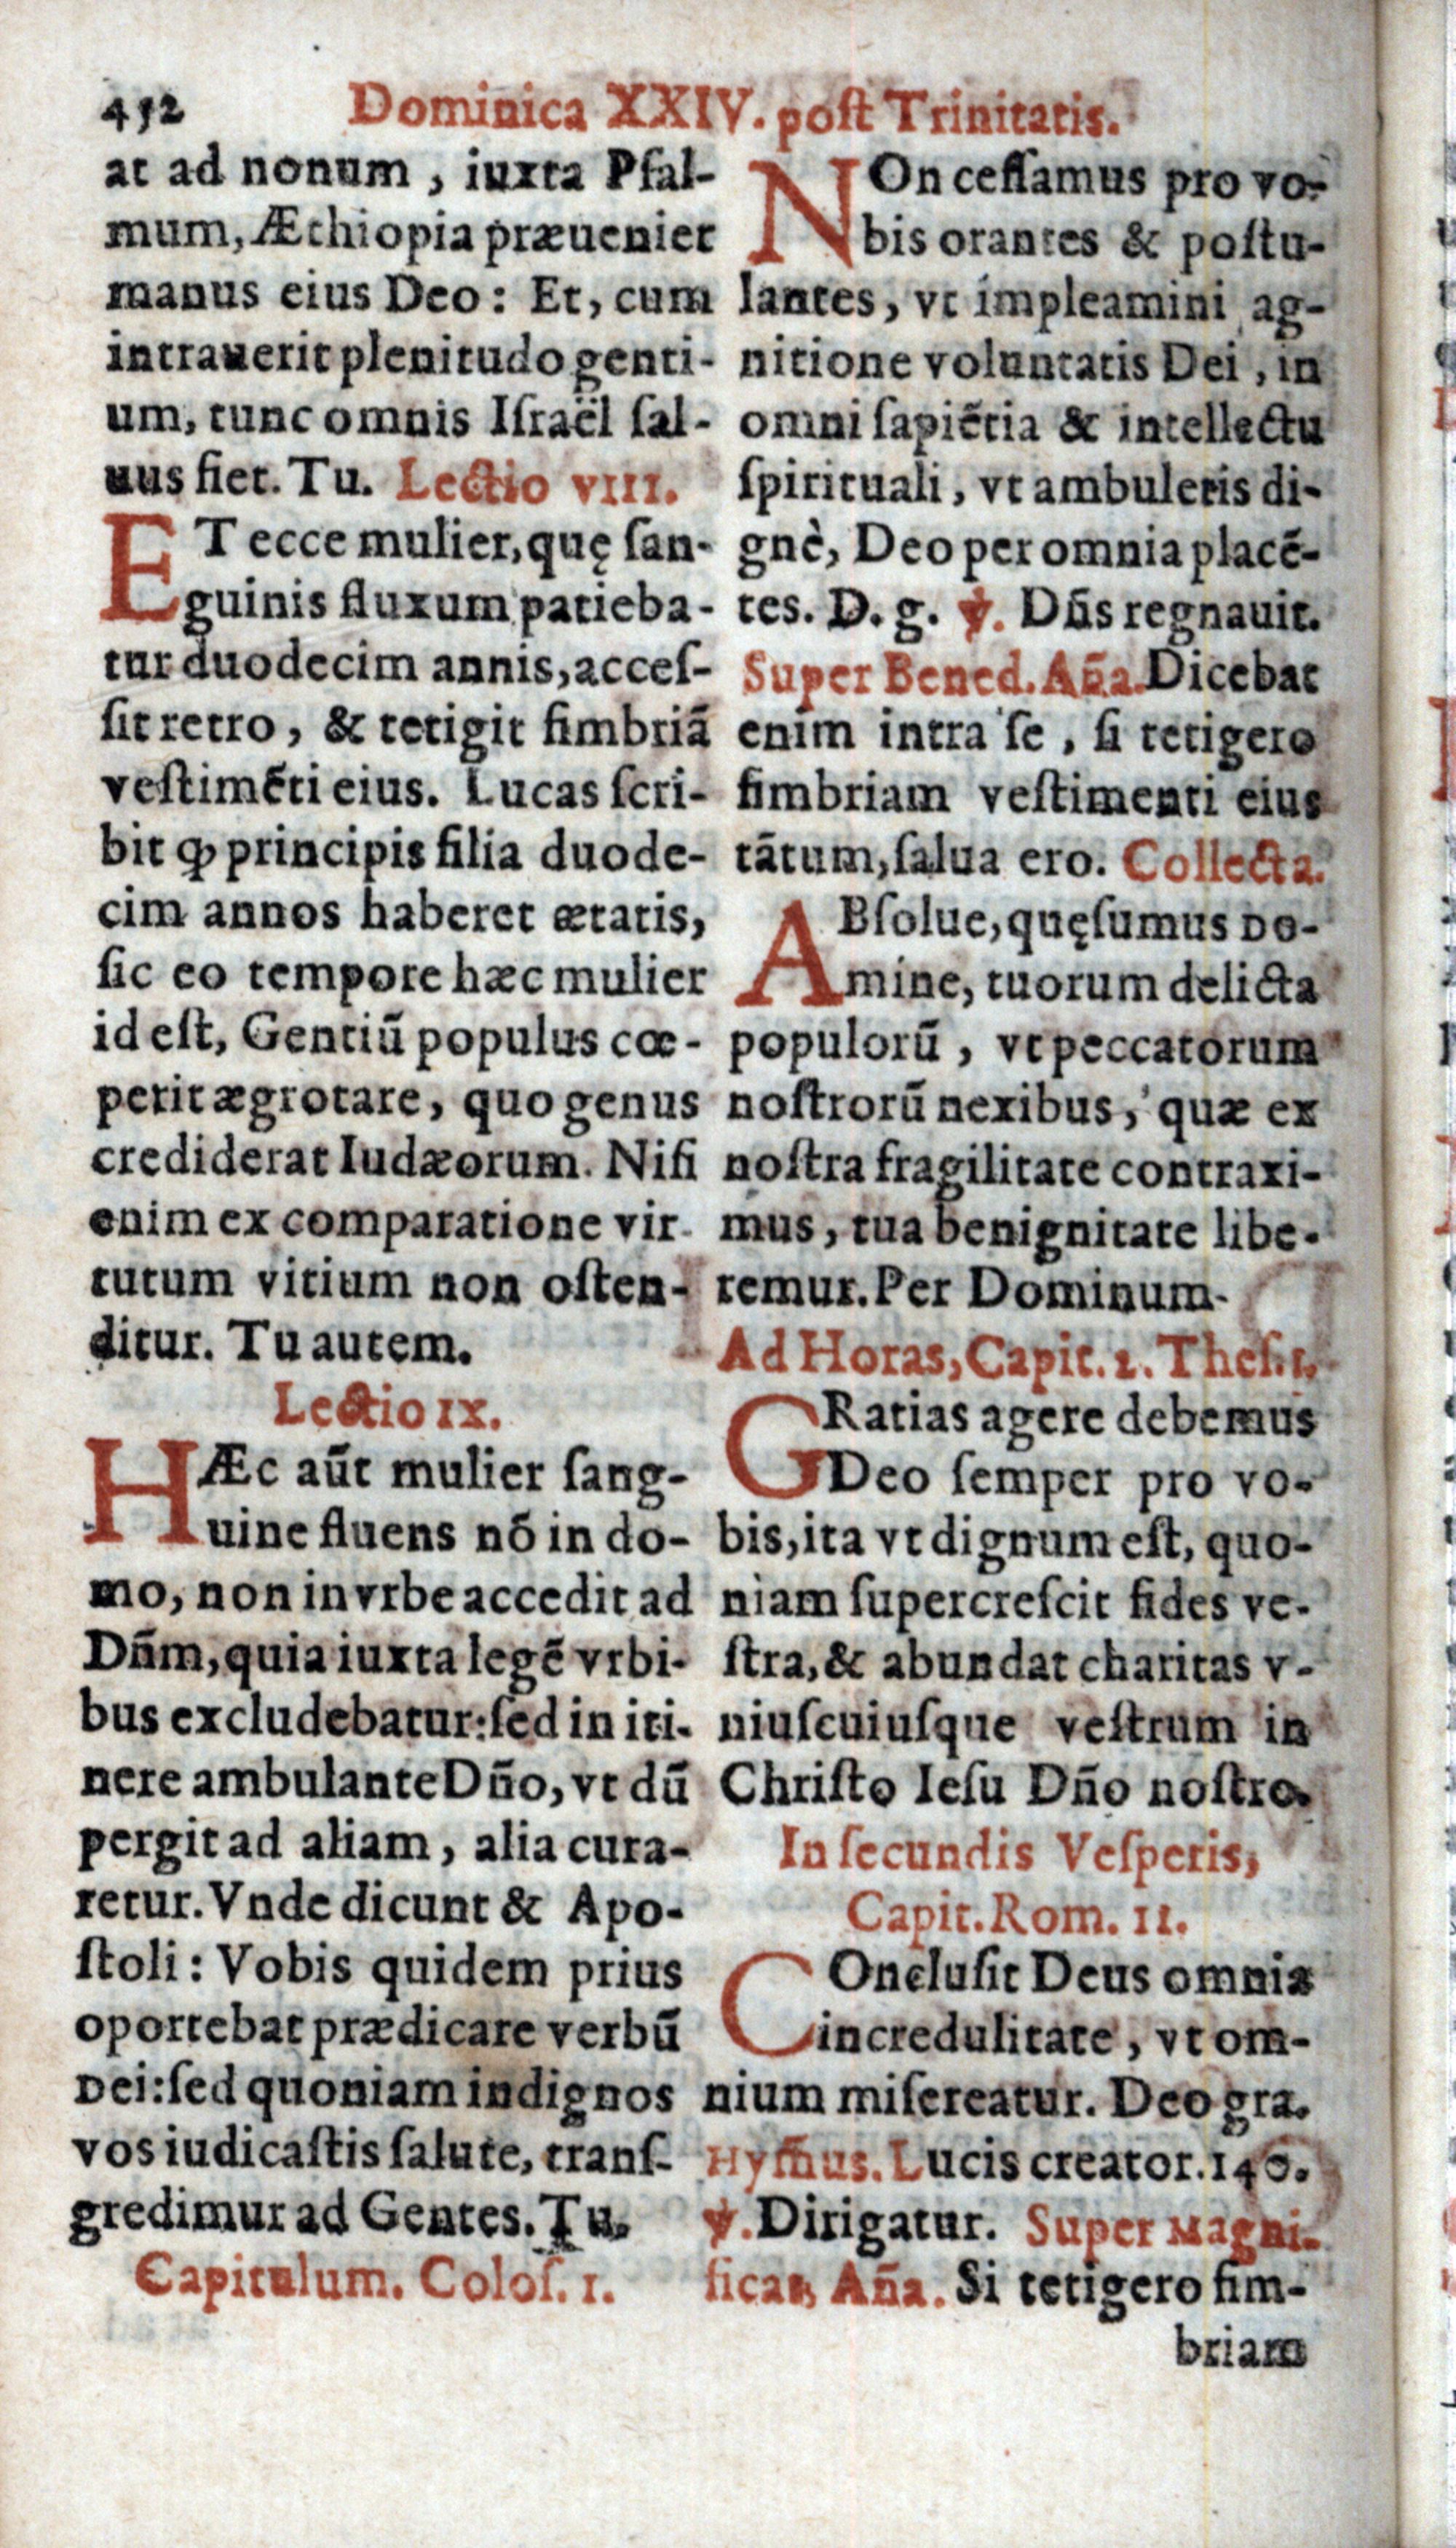 452 Dominica XXIV. poſt Trinitatis.
at ad nonum, iuxta Pſal-
mum, Æthiopia præueniet
manus eius Deo: Et, cum
intrauerit plenitudo genti-
um, tunc omnis Iſraël ſal-
uus fiet. Tu. Lectio VIII.
ET ecce mulier, quę ſan-
guinis fluxum patieba-
tur duodecim annis, acceſ-
ſit retro, & tetigit fimbriā
veſtimēti eius. Lucas ſcri-
bit ꝙ principis filia duode-
cim annos haberet ætatis,
ſic eo tempore hæc mulier
id eſt, Gentiū populus cœ-
perit ægrotare, quo genus
crediderat Iudæorum. Niſi
enim ex comparatione vir-
tutum vitium non oſten-
ditur. Tu autem.
Lectio IX.
HÆc aūt mulier ſang-
uine fluens nō in do-
mo, non in vrbe accedit ad
Dñm, quia iuxta legē vrbi-
bus excludebatur: ſed in iti-
nere ambulante Dño, vt dū
pergit ad aliam, alia cura-
retur. Vnde dicunt & Apo-
ſtoli: Vobis quidem prius
oportebat prædicare verbū
Dei: ſed quoniam indignos
vos iudicaſtis ſalute, tranſ-
gredimur ad Gentes. Tu.
Capitulum. Coloſ. 1.
NOn ceſſamus pro vo-
bis orantes & poſtu-
lantes, vt impleamini ag-
nitione voluntatis Dei, in
omni ſapiētia & intellectu
ſpirituali, vt ambuletis di-
gnè, Deo per omnia placē-
tes. D. g. ℣. Dñs regnauit.
Super Bened. Aña. Dicebat
enim intra ſe, ſi tetigero
fimbriam veſtimenti eius
tātum, ſalua ero. Collecta.
ABſolue, quęſumus Do-
mine, tuorum delicta
populorū, vt peccatorum
noſtrorū nexibus, quæ ex
noſtra fragilitate contraxi-
mus, tua benignitate libe-
remur. Per Dominum.
Ad Horas, Capit. 2. Theſ. 1.
GRatias agere debemus
Deo ſemper pro vo-
bis, ita vt dignum eſt, quo-
niam ſupercreſcit fides ve-
ſtra, & abundat charitas v-
niuſcuiuſque veſtrum in
Chriſto Ieſu Dño noſtro.
In ſecundis Veſperis,
Capit. Rom. 11.
COncluſit Deus omnia
incredulitate, vt om-
nium miſereatur. Deo gra.
Hym̄us. Lucis creator. 140.
℣. Dirigatur. Super Magni-
ficat, Aña. Si tetigero fim-
briam